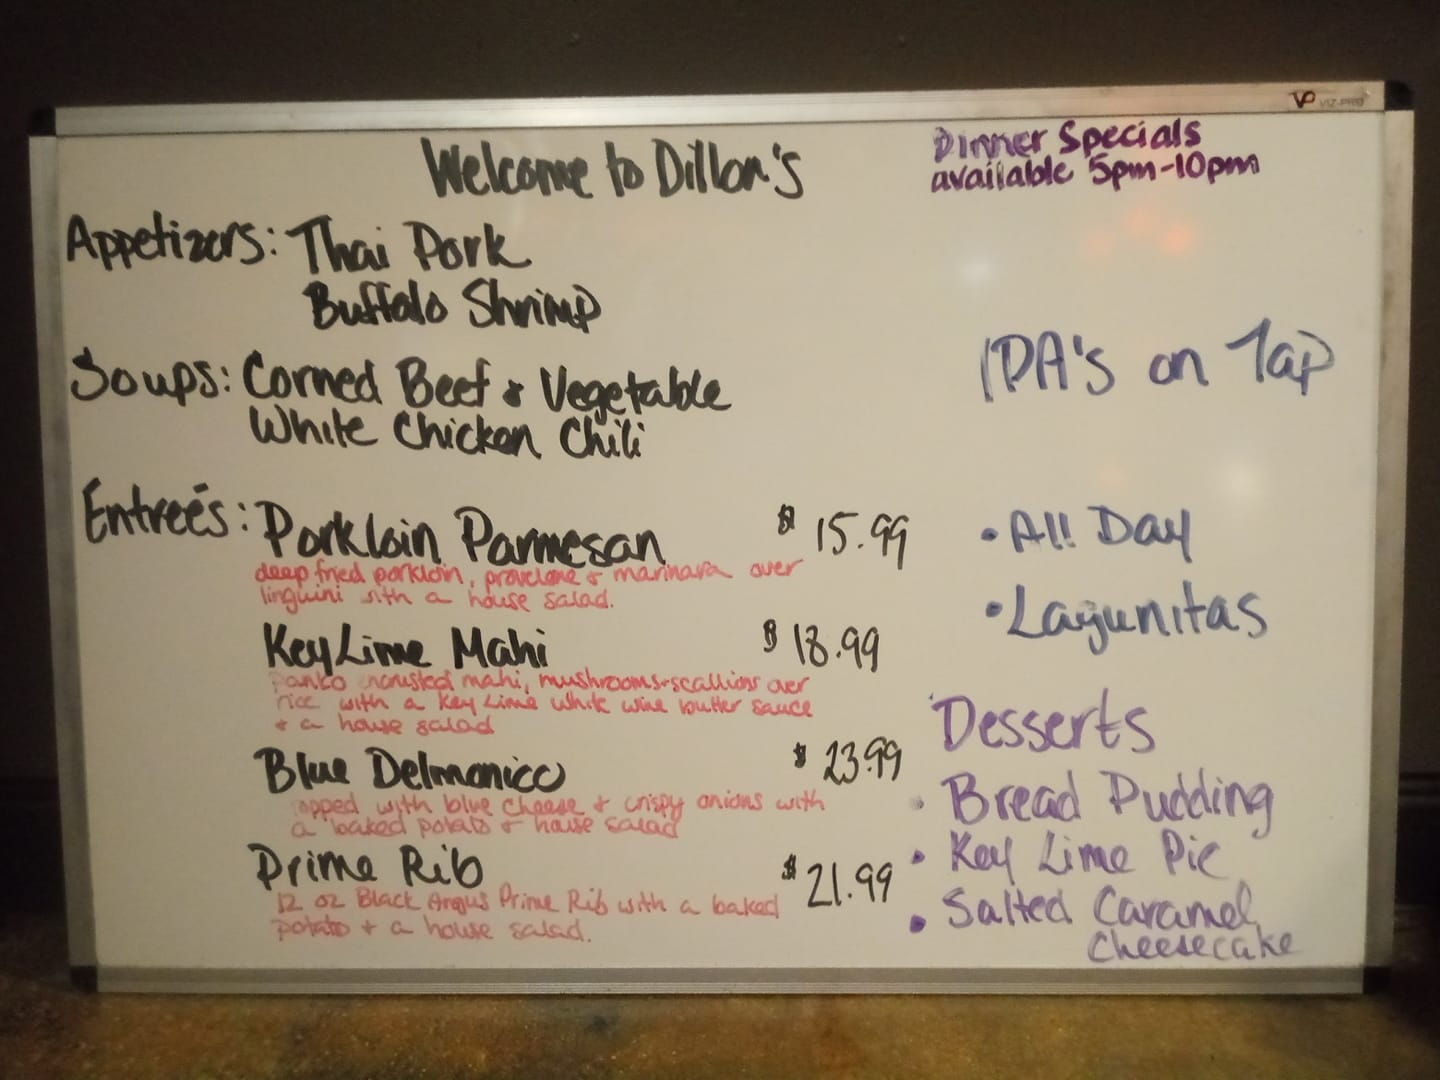 VP VIZ-PRO
Welcome to Dillon's
Dinner Specials
available 5pm-10pm
Appetizers: Thai Pork
Buffalo Shrimp
Soups: Corned Beef & Vegetable
White Chicken Chili
Entreés: Porkloin Parmesan $15.99
deep fried porkloin, provelone & marinara over
linguini with a house salad.
Key Lime Mahi $18.99
panko incrusted mahi, mushrooms+scallions over
rice with a Key Lime White wine butter sauce
& a house salad
Blue Delmonico $23.99
topped with blue cheese & crispy onions with
a baked potato & house salad
Prime Rib $21.99
12 oz Black Angus Prime Rib with a baked
potato + a house salad.
IPA's on Tap
• All Day
• Lagunitas
Desserts
• Bread Pudding
• Key Lime Pie
• Salted Caramel
Cheesecake